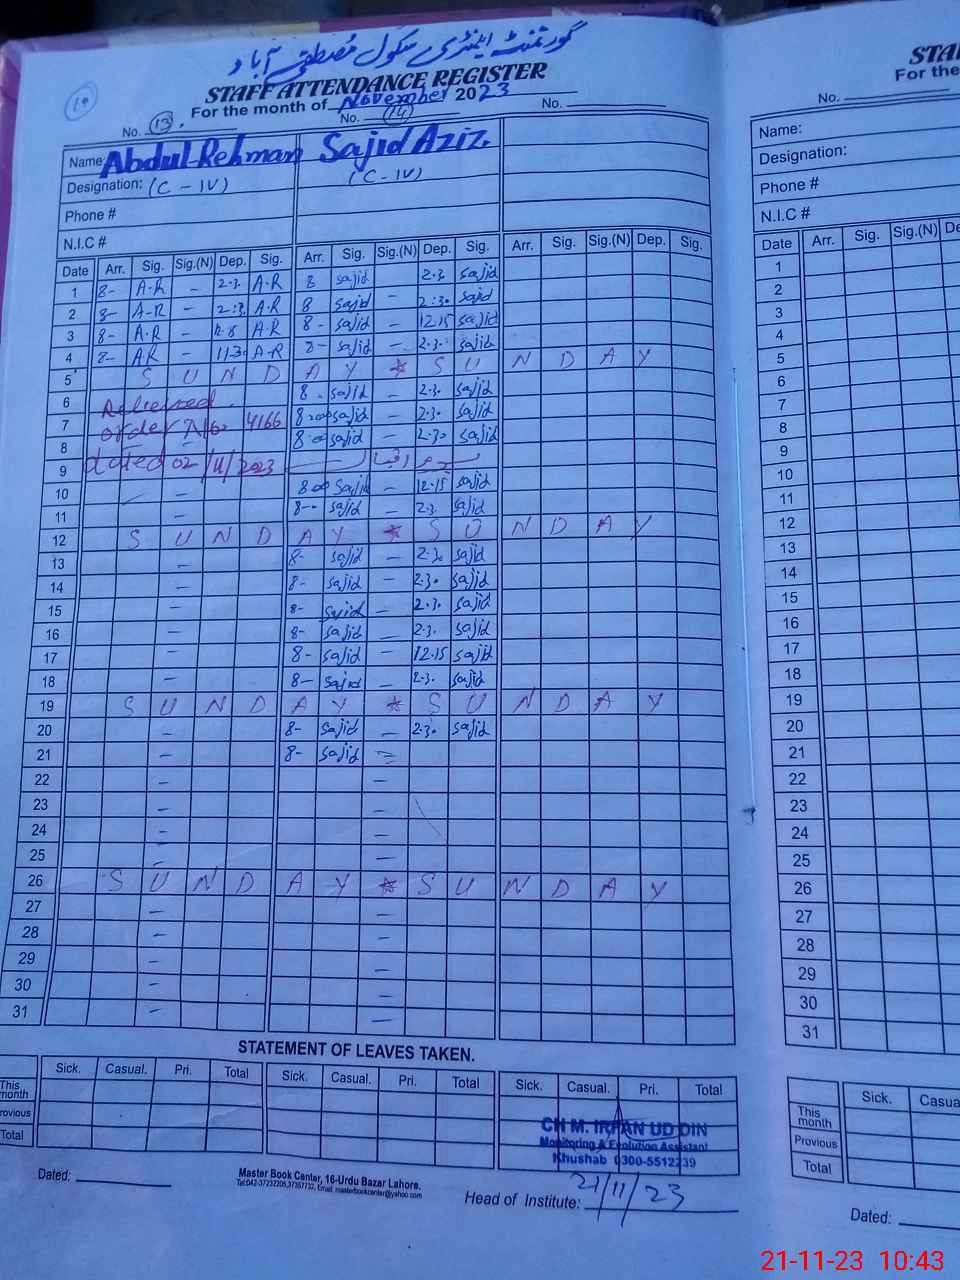 گورنمنٹ ایلیمنٹری سکول مُصطفٰی آباد
STAFF ATTENDANCE REGISTER
For the month of November 2023
10
No. 13 No. 14 No.
Name: Abdul Rehman Sajid Aziz.
Designation: (C - IV) (C - IV)
Phone #
N.I.C #
Date Arr. Sig. Sig.(N) Dep. Sig. Arr. Sig. Sig.(N) Dep. Sig. Arr. Sig. Sig.(N) Dep. Sig.
1 8- A.R - 2.3. A.R 8 sajid 2.3. sajid
2 8- A-R - 2:3. A.R 8 sajid - 2:30. sajid
3 8- A.R - A.R 8- sajid - 12.15 sajid
4 8- AR - 11.30 A-R 8- sajid - 2.3. sajid
5 S U N D A Y * S U N D A Y
6 Relieved. 8. sajid - 2.3. sajid
7 order No. 4166 8.00 sajid - 2.3. sajid
8 - 8.0 sajid - 2.30 sajid
9 dated 02/11/2023 یوم اقبال
10 - 8.00 Sajid - 12.15 sajid
11 - 8-- sajid - 2.3. sajid
12 S U N D A Y * S U N D A Y
13 - 8- sajid - 2.30 sajid
14 - 8- sajid - 2.30 sajid
15 - 8- sajid - 2.30 sajid
16 - 8- sajid - 2.3. sajid
17 - 8- sajid - 12.15 sajid
18 - 8- sajid - 2.3. sajid
19 S U N D A Y * S U N D A Y
20 - 8- sajid - 2.30 sajid
21 - 8- sajid =
22 - -
23 - -
24 - -
25 - -
26 S U N D A Y * S U N D A Y
27 - -
28 - -
29 - -
30 - -
31 - -
STATEMENT OF LEAVES TAKEN.
Sick. Casual. Pri. Total Sick. Casual. Pri. Total Sick. Casual. Pri. Total
This month
Provious
Total
CH M. IRFAN UD DIN
Monitoring & Evolution Assistant
Khushab 0300-5512239
Dated:
Master Book Center, 16-Urdu Bazar Lahore.
Tel:042-37232205,37357732, Email: masterbookcenter@yahoo.com
Head of Institute: 21/11/23
STA
For the
No.
Name:
Designation:
Phone #
N.I.C #
Date Arr. Sig. Sig.(N) De
1
2
3
4
5
6
7
8
9
10
11
12
13
14
15
16
17
18
19
20
21
22
23
24
25
26
27
28
29
30
31
Sick. Casua
This month
Provious
Total
Dated:
21-11-23 10:43